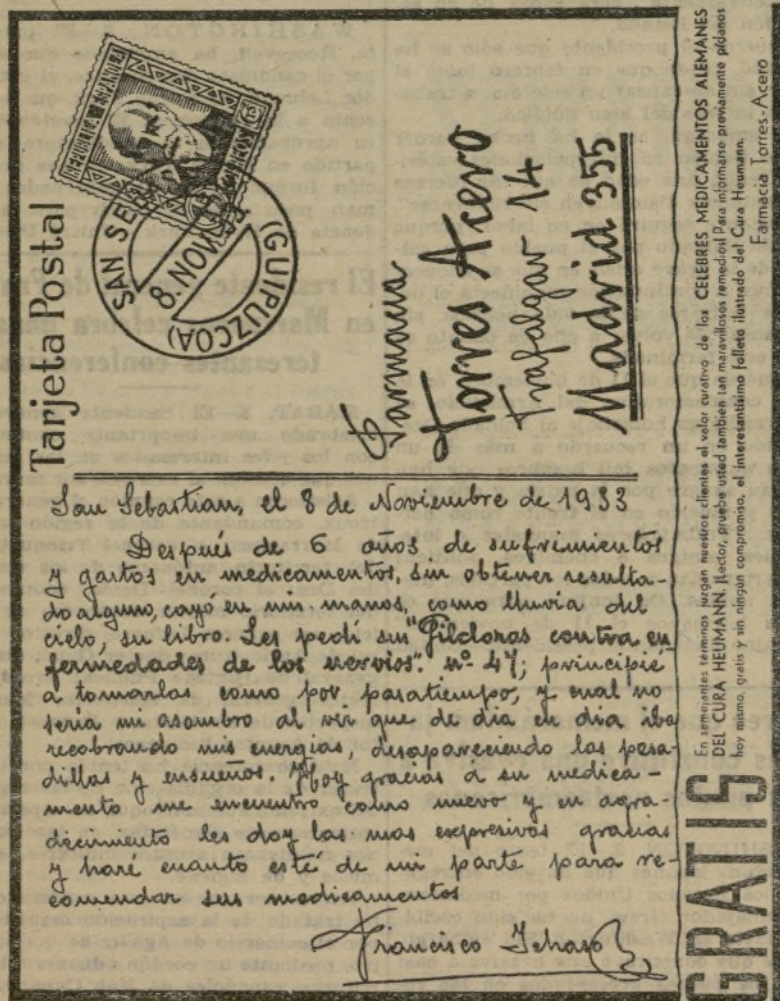 Tarjeta Postal
REPUBLICA ESPAÑOLA
SAN SEB
8.NOV
(GUIPUZCOA)
Farmacia
Torres Acero
Trafalgar 14
Madrid 355
San Sebastian, el 8 de Noviembre de 1933
Después de 6 años de sufrimientos
y gastos en medicamentos, sin obtener resulta-
do alguno, cayó en mis manos, como lluvia del
cielo, su libro. Les pedí sus "Píldoras contra en
fermedades de los nervios". nº 47; principié
a tomarlas como por pasatiempo, y cual no
sería mi asombro al ver que de dia en dia iba
recobrando mis energias, desapareciendo las pesa-
dillas y ensueños. Hoy gracias á su medica-
mento me encuentro como nuevo y en agra-
decimiento les doy las mas expresivas gracias
y haré cuanto esté de mi parte para re-
comendar sus medicamentos
Francisco
GRATIS
En semejantes términos juzgan nuestros clientes el valor curativo de los CELEBRES MEDICAMENTOS ALEMANES
DEL CURA HEUMANN. ¡Lector, pruebe usted también tan maravillosos remedios! Para informarse previamente pídanos
hoy mismo, gratis y sin ningún compromiso, el interesantísimo folleto ilustrado del Cura Heumann.
Farmacia Torres-Acero